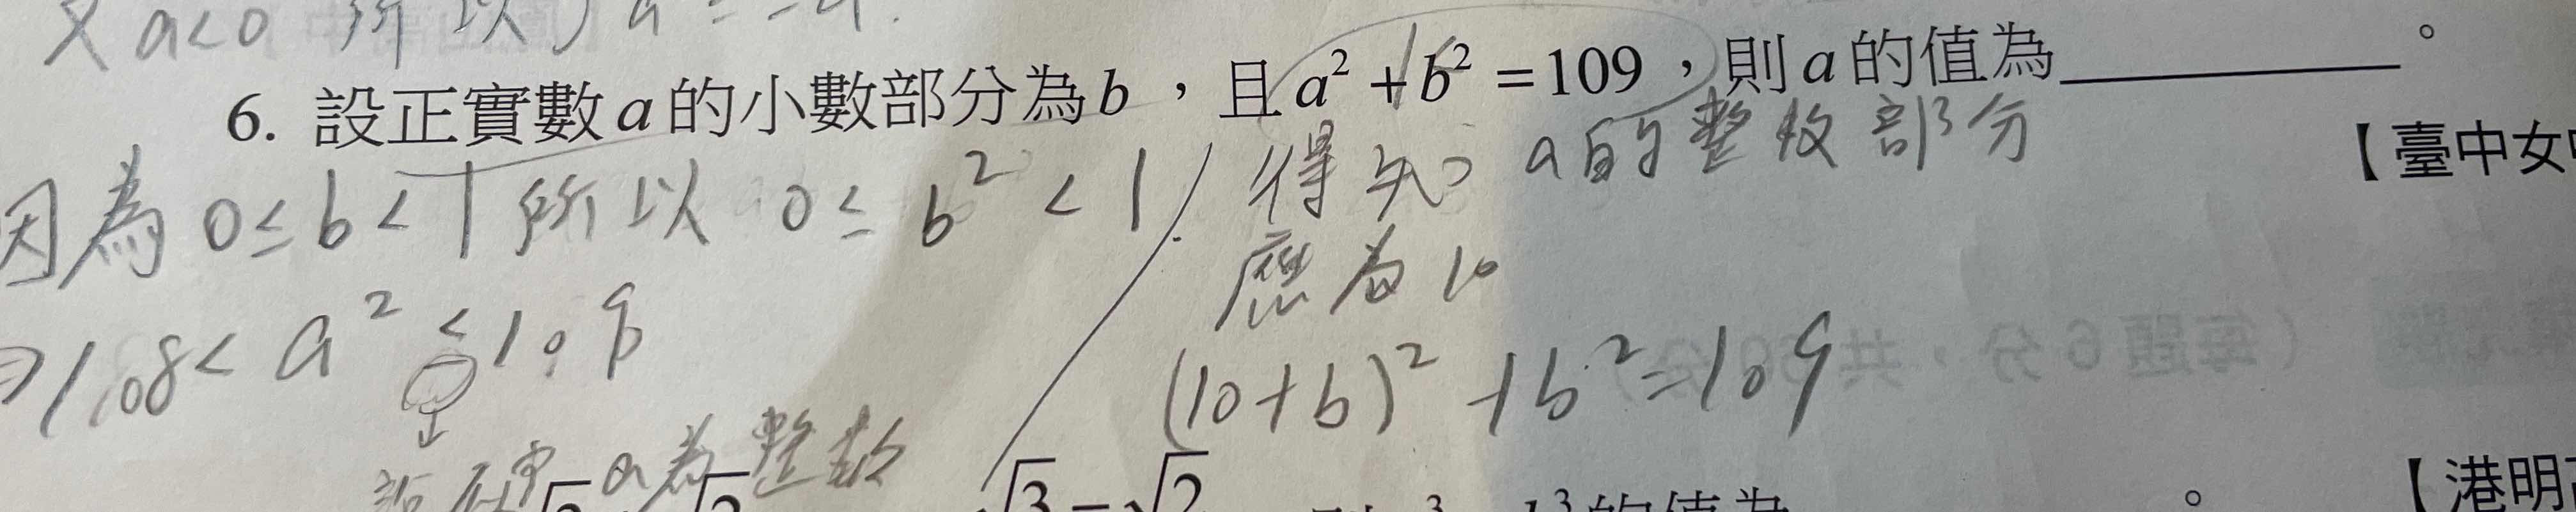 又 a<0 所以
6. 設正實數a的小數部分為b，且a²+b²=109，則a的值為________。
【臺中女
因為 0≤b<1 所以 0≤b²<1.
得知 a的整數部分
應為10
⇒108<a²≤109
(10+b)²+b²=109
a為整數
√3-√2
³的值為 。
【港明